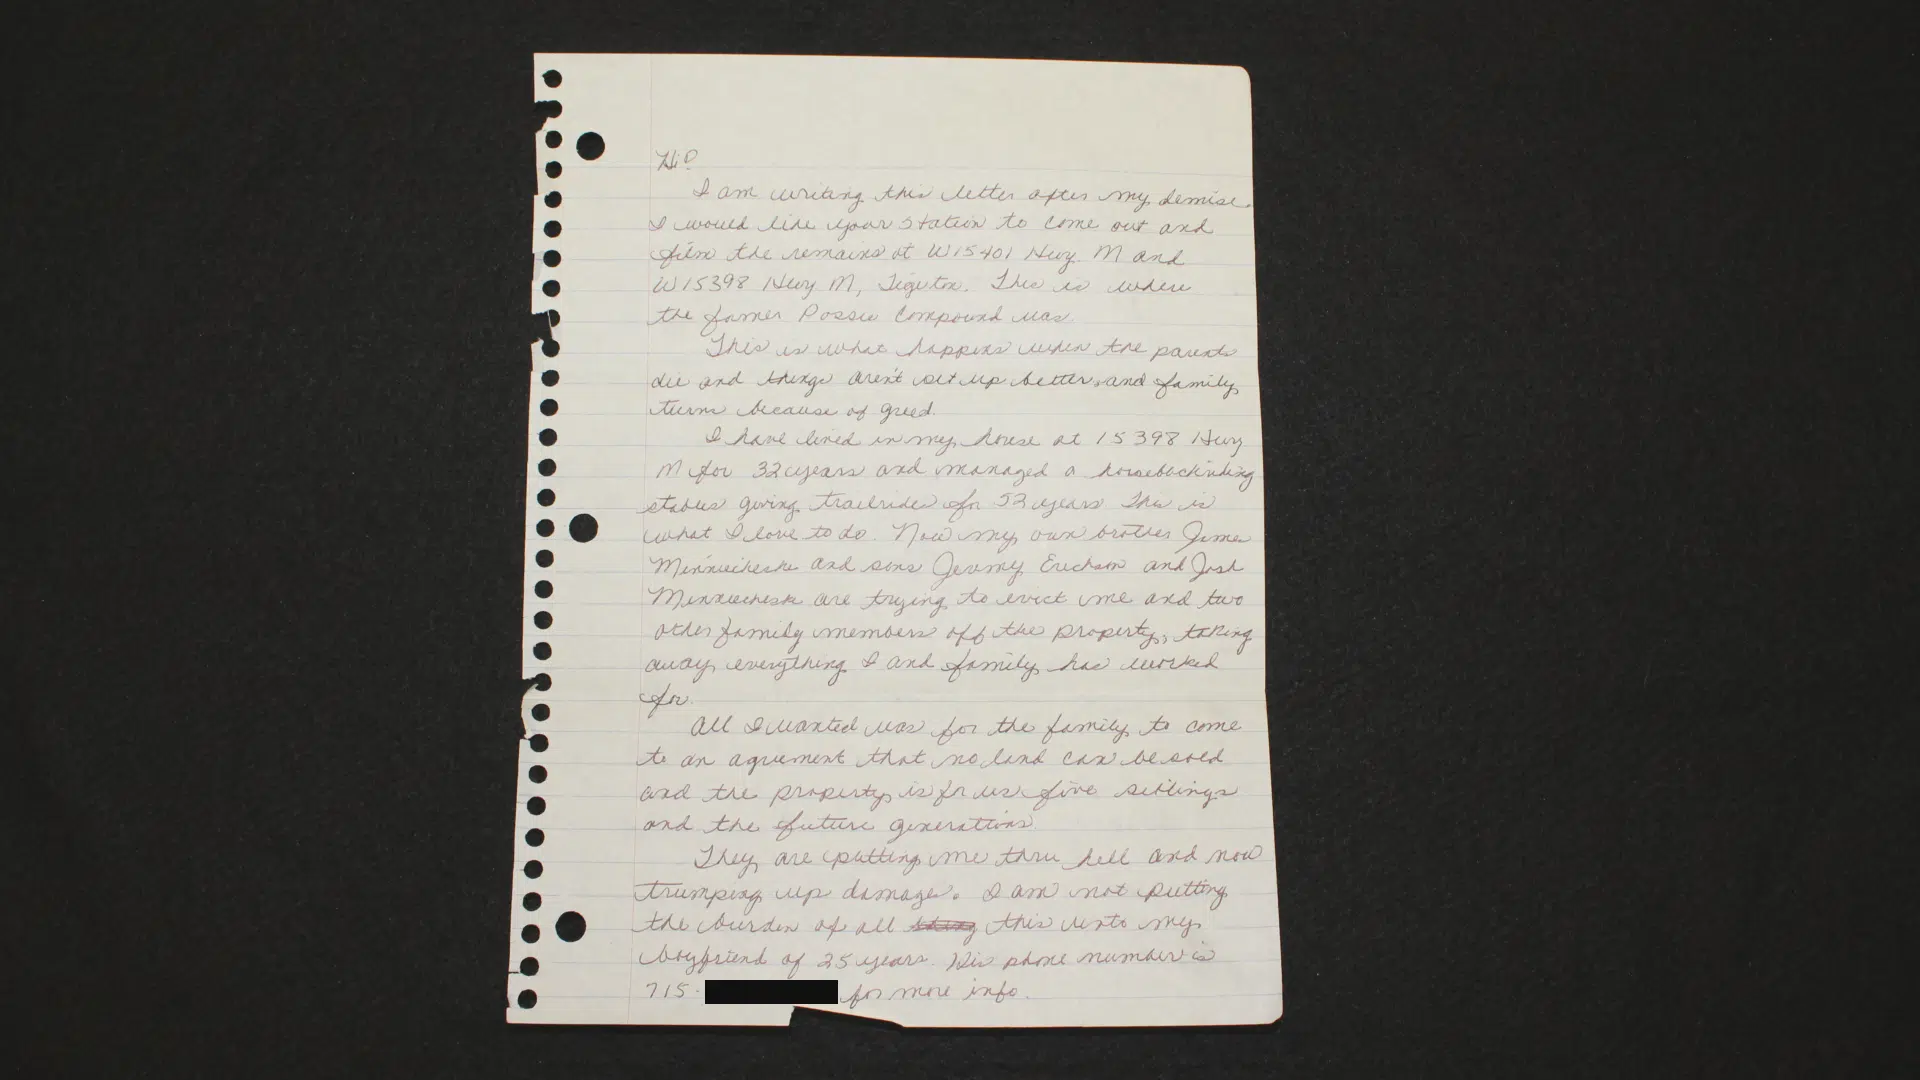 Hi!
I am writing this letter after my demise.
I would like your station to come out and
film the remains at W15401 Hwy. M and
W15398 Hwy M, Tigerton. This is where
the former Posse Compound was.
This is what happens when the parents
die and things aren't set up better, and family
turns because of greed.
I have lived in my house at 15398 Hwy
M for 32 years and managed a horsebackriding
stables giving trailrides for 52 years. This is
what I love to do. Now my own brother James
Minniecheske and sons Jeremy Erickson and Josh
Minniecheske are trying to evict me and two
other family members off the property, taking
away everything I and family has worked
for.
All I wanted was for the family to come
to an agreement that no land can be sold
and the property is for us five siblings
and the future generations.
They are putting me thru hell and now
trumping up damage. I am not putting
the burden of all this unto my
boyfriend of 25 years. His phone number is
715- for more info.